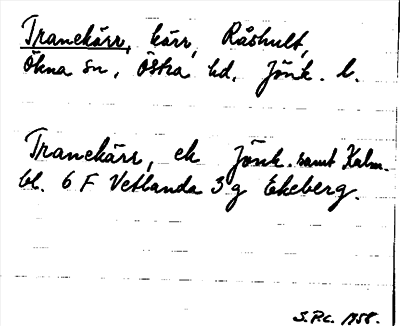 Tranekärr, kärr, Råshult,
Ökna sn, Östra hd, Jönk. l.
Tranekärr, ek Jönk. samt Kalm.
bl. 6 F Vetlanda 3 g Ekeberg.
S.P.C. 1958.